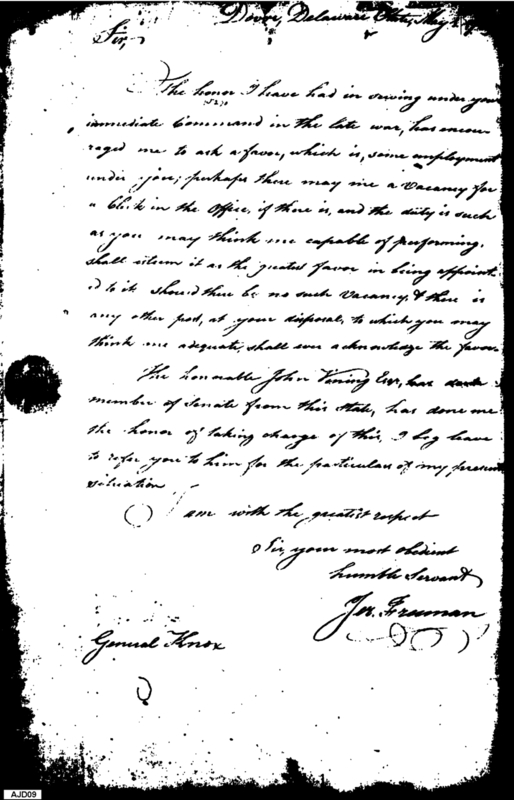 Dover, Delaware State, May
Sir,
The honor I have had in serving under your
immediate Command in the late war, has encou-
raged me to ask a favor, which is, some employment
under you; perhaps there may me a Vacancy for
a Clerk in the Office, if there is, and the duty is such
as you may think me capable of performing,
shall esteem it as the greatest favor in being appoint
ed to it. Should there be no such Vacancy, & there is
any other post, at your disposal, to which you may
think me adequate, shall ever acknowledge the favor.
The honorable John Vining Esqr, has
member of Senate from this State, has done me
the honor of taking charge of this, I beg leave
to refer you to him for the particulars of my present
situation
I am with the greatest respect
Sir, your most obedient
humble Servant
Jer. Freeman
General Knox
AJD09